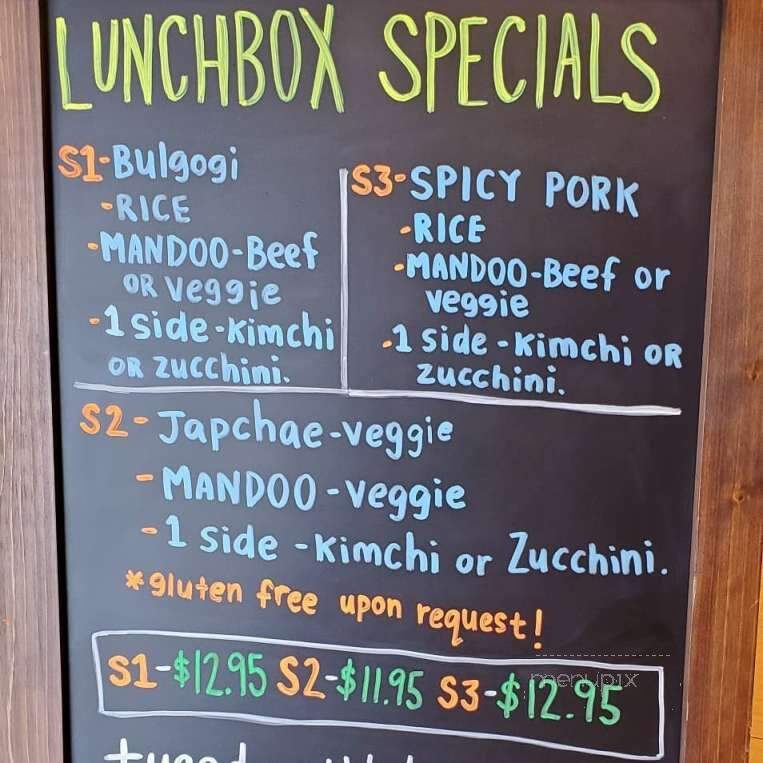 LUNCHBOX SPECIALS
S1-Bulgogi
-RICE
-MANDOO-Beef
OR veggie
-1 side-kimchi
OR zucchini.
S3-SPICY PORK
-RICE
-MANDOO-Beef or
veggie
-1 side-kimchi OR
zucchini.
S2-Japchae-veggie
-MANDOO-veggie
-1 side-kimchi or Zucchini.
*gluten free upon request!
S1-$12.95 S2-$11.95 S3-$12.95
menupix